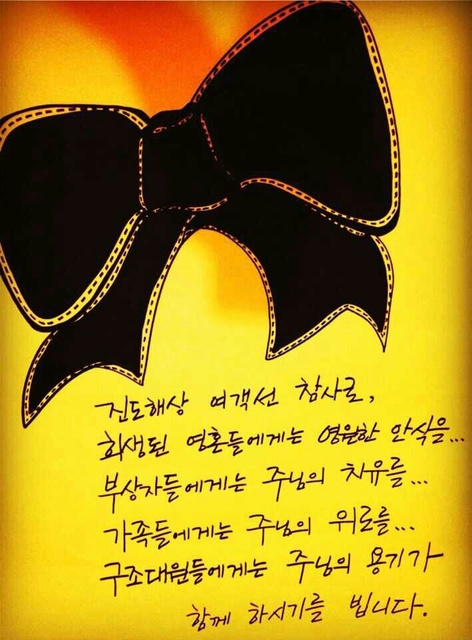 진도해상 여객선 참사로,
희생된 영혼들에게는 영원한 안식을...
부상자들에게는 주님의 치유를...
가족들에게는 주님의 위로를...
구조대원들에게는 주님의 용기가
함께 하시기를 빕니다.